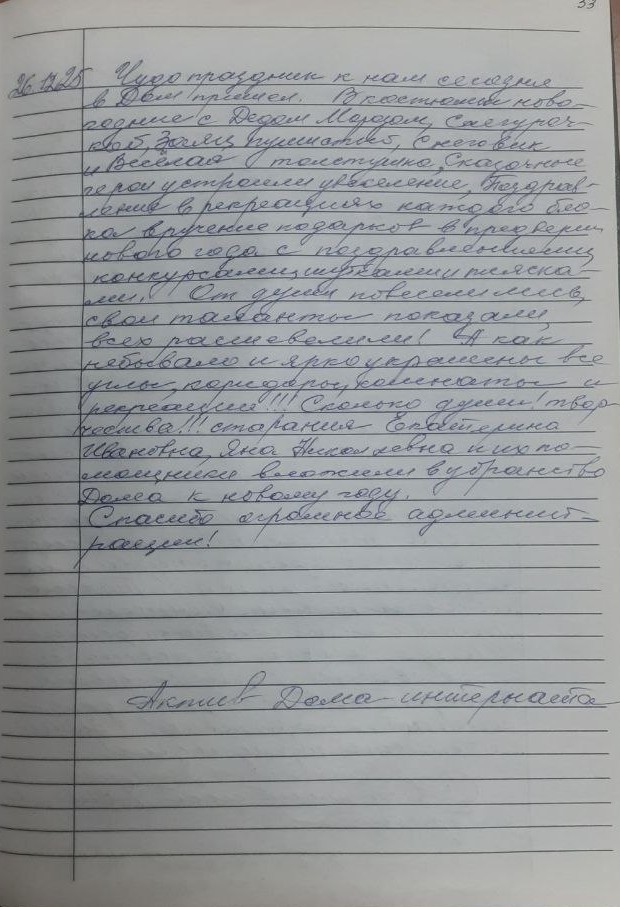 33
26.12.25 Чудо праздник к нам сегодня
в Дом пришёл. В костюмах ново-
годние с Дедом Морозом, Снегуроч-
кой, Заяц пушистый, Снеговик
и Весёлая толстушка, Сказочные
герои устроили увеселение, Поздрав-
ление в рекреациях каждого бло-
ка вручение подарков в предверии
нового года с поздравлениями
конкурсами, шутками и пляска-
ми. От души повеселились,
свои таланты показали,
всех расшевелили! А как
небывало и ярко украшены все
углы, коридоры, комнаты и
рекреации!!! Сколько души! твор-
чества!!! старания Екатерина
Ивановна, Яна Николаевна и их по-
мощники вложили в убранство
Дома к новому году.
Спасибо огромное админист-
рации!
Актив Дома-интерната